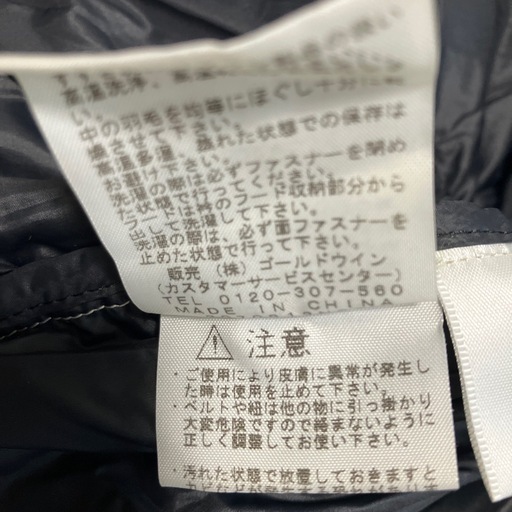 高温洗浄、
中の羽毛を均等にほぐし十分に乾
燥させて下さい。
高温多湿、蒸れた状態での保存は
お避け下さい。
洗濯の際は必ずファスナーを閉め
た状態で行ってください。
フード収納部分から
出して洗濯して下さい。
洗濯の際は、必ず面ファスナーを
止めた状態で行って下さい。
販売 (株) ゴールドウイン
(カスタマーサービスセンター)
TEL 0120-307-560
MADE IN CHINA
注意
・ご使用により皮膚に異常が発生し
た時は使用を止めて下さい。
・ベルトや紐は他の物に引っ掛かり
大変危険ですので絡まないように
正しく調整してお使い下さい。
・汚れた状態で放置しておきますと